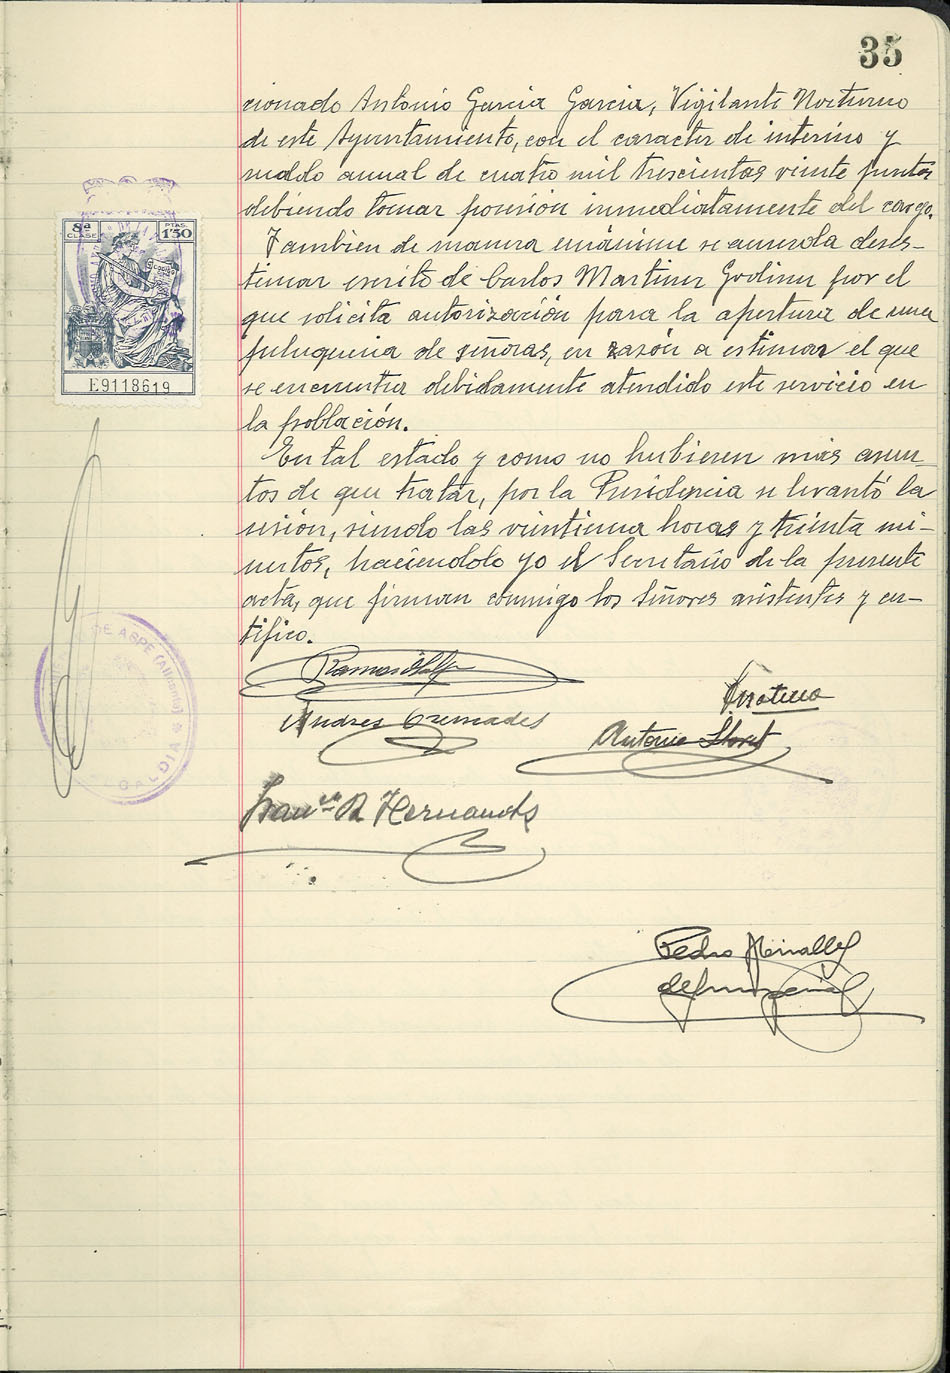 35
cionado Antonio Garcia Garcia, Vigilante Nocturno
de este Ayuntamiento, con el caracter de interino y
sueldo anual de cuatro mil trescientas veinte pesetas
debiendo tomar posesión inmediatamente del cargo.
Tambien de manera unánime se acuerda deses-
timar escrito de Carlos Martinez Godinez por el
que solicita autorización para la apertura de una
peluqueria de señoras, en razón a estimar el que
se encuentra debidamente atendido este servicio en
la población.
En tal estado y como no hubieren más asun-
tos de que tratar, por la Presidencia se levantó la
sesión, siendo las veintiuna horas y treinta mi-
nutos, haciendolo yo el Secretario de la presente
acta, que firman conmigo los señores asistentes y cer-
tifico.
8ª CLASE
PTAS. 1'50
E9118619
DE ASPE (Alicante)
ALCALDIA
Andres Cremades
Antonio Lloret
Hernandez
Pedro